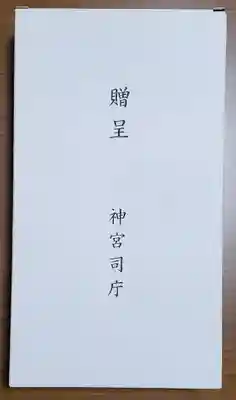 贈呈
神宮司庁